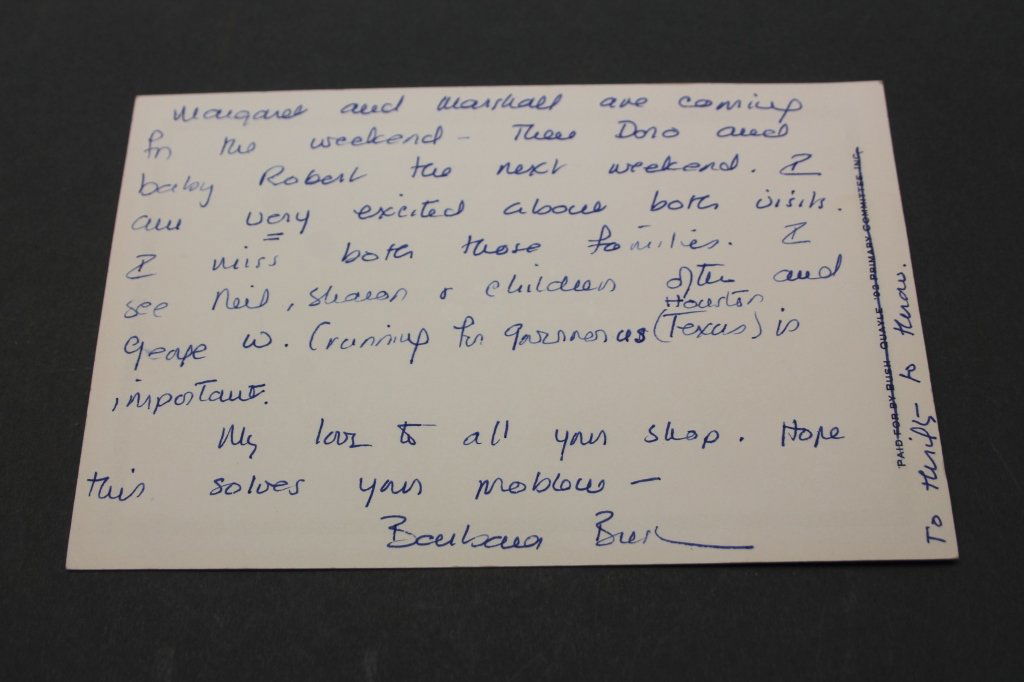 Margaret and Marshall are coming
for the weekend - Then Doro and
baby Robert the next weekend. I
am very excited about both visits.
I miss both those families. I
see Neil, Sharon & children often and
Houston
George W. (running for governor as (Texas) is
important.
My love to all your shop. Hope
this solves your problem —
Barbara Bush
PAID FOR BY BUSH - QUAYLE '92 PRIMARY COMMITTEE INC.
To thrifty to throw.